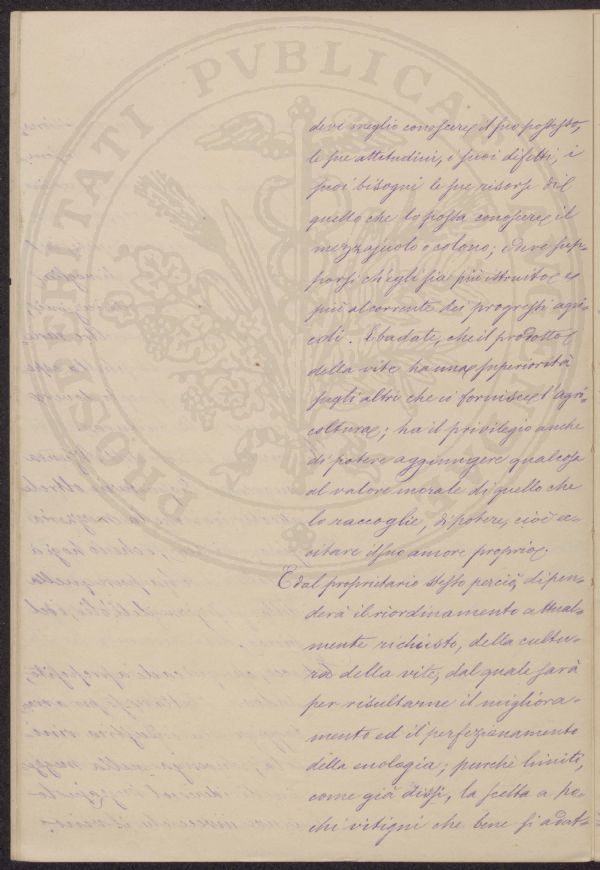 PROSPERITATI PVBLICAE
deve meglio conoscere il suo possesso,
le sue attitudini, i suoi difetti, i
suoi bisogni le sue risorse di
quello che lo possa conoscere il
mezzajuolo o colono; e deve sup-
porsi ch'egli sia più istruito e
più al corrente dei progressi agri-
coli. E badate, che il prodotto
della vite ha una superiorità
sugli altri che ci fornisce l'agri-
coltura; ha il privilegio anche
di potere aggiungere qualcosa
al valore morale di quello che
lo raccoglie, di potere, cioè ec-
citare il suo amore proprio.
E dal proprietario stesso perciò, dipen-
derà il riordinamento attual-
mente richiesto, della cultu-
ra della vite, dal quale sarà
per risultarne il migliora-
mento ed il perfezionamento
della enologia; purchè limiti,
come già dissi, la scelta a po-
chi vitigni che bene si adat-